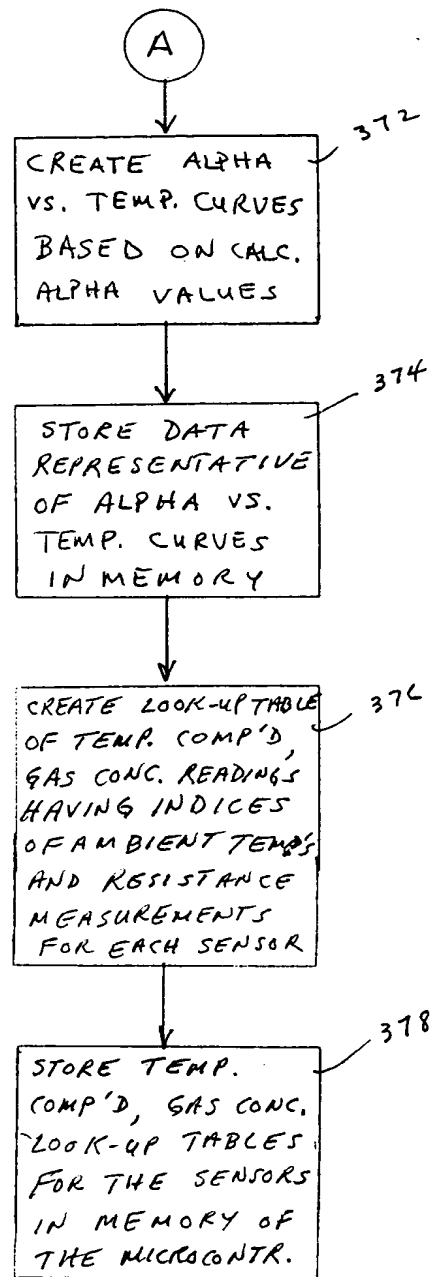 A
372
CREATE ALPHA
VS. TEMP. CURVES
BASED ON CALC.
ALPHA VALUES
374
STORE DATA
REPRESENTATIVE
OF ALPHA VS.
TEMP. CURVES
IN MEMORY
376
CREATE LOOK-UP TABLE
OF TEMP. COMP'D,
GAS CONC. READINGS
HAVING INDICES
OF AMBIENT TEMP'S
AND RESISTANCE
MEASUREMENTS
FOR EACH SENSOR
378
STORE TEMP.
COMP'D, GAS CONC.
LOOK-UP TABLES
FOR THE SENSORS
IN MEMORY OF
THE MICROCONTR.